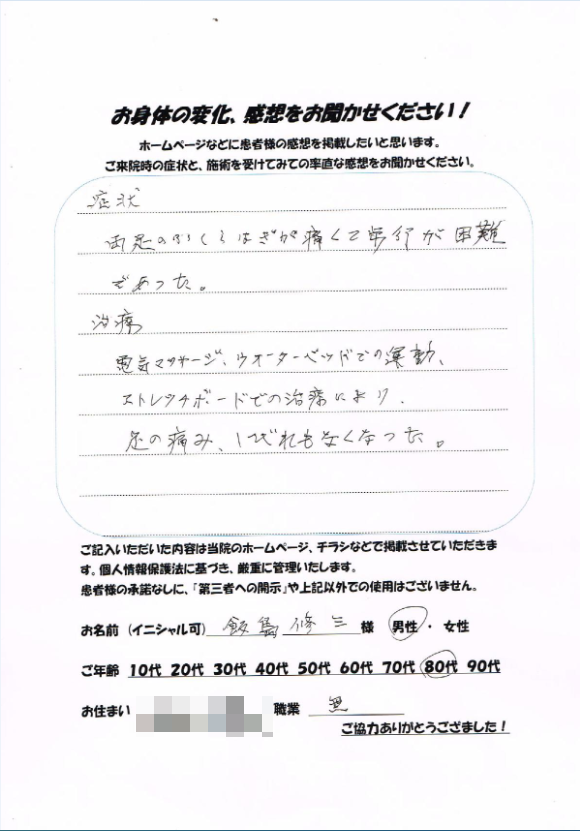 お身体の変化、感想をお聞かせください！
ホームページなどに患者様の感想を掲載したいと思います。
ご来院時の症状と、施術を受けてみての率直な感想をお聞かせください。
症状
両足のふくらはぎが痛くて歩行が困難
であった。
治療
電気マッサージ、ウォーターベッドでの運動、
ストレッチボードでの治療により、
足の痛み、しびれもなくなった。
ご記入いただいた内容は当院のホームページ、チラシなどで掲載させていただきま
す。個人情報保護法に基づき、厳重に管理いたします。
患者様の承諾なしに、「第三者への開示」や上記以外での使用はございません。
お名前（イニシャル可） 飯島 修三 様 男性・女性
ご年齢 10代 20代 30代 40代 50代 60代 70代 80代 90代
お住まい 職業 無
ご協力ありがとうござました！